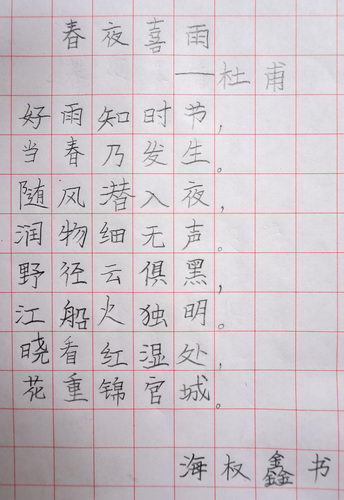 春夜喜雨
——杜甫
好雨知时节，
当春乃发生。
随风潜入夜，
润物细无声。
野径云俱黑，
江船火独明。
晓看红湿处，
花重锦官城。
海权鑫书